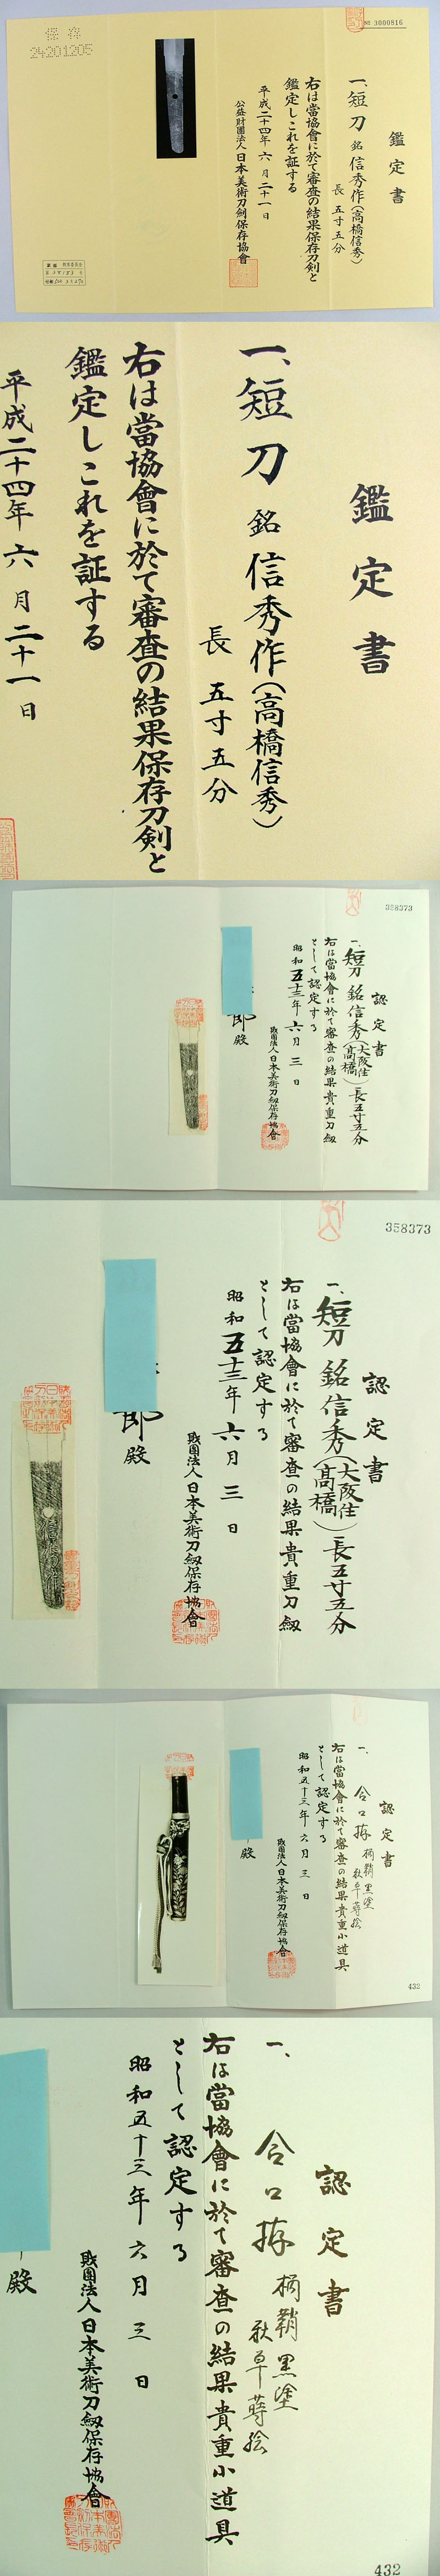 № 3000816
保存
24201205
鑑定書
一、短刀 銘 信秀作(高橋信秀)
長 五寸五分
右は當協會に於て審査の結果保存刀剣と
鑑定しこれを証する
平成二十四年 六 月 二十一 日
公益財團法人 日本美術刀剣保存協會
鑑定書
一、短刀 銘 信秀作(高橋信秀)
長 五寸五分
右は當協會に於て審査の結果保存刀剣と
鑑定しこれを証する
平成二十四年 六 月 二十一 日
358373
認定書
一、短刀 銘 信秀(大阪住高橋)長五寸五分
右は當協會に於て審査の結果貴重刀剱
として認定する
昭和五十三年 六 月 三 日
財團法人 日本美術刀剱保存協會
郎殿
358373
認定書
一、短刀 銘 信秀(大阪住高橋)長五寸五分
右は當協會に於て審査の結果貴重刀剱
として認定する
昭和五十三年 六 月 三 日
財團法人 日本美術刀剱保存協會
郎殿
認定書
一、合口拵 柄鞘黒塗
秋草蒔絵
右は當協會に於て審査の結果貴重小道具
として認定する
昭和五十三年 六 月 三 日
財團法人 日本美術刀剱保存協會
殿
432
認定書
一、合口拵 柄鞘黒塗
秋草蒔絵
右は當協會に於て審査の結果貴重小道具
として認定する
昭和五十三年 六 月 三 日
財團法人 日本美術刀剱保存協會
殿
432